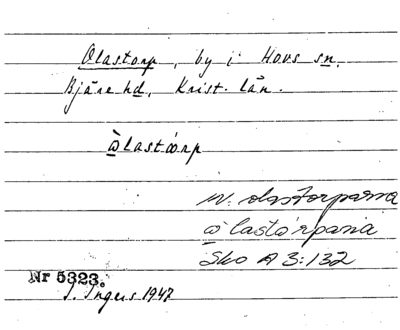 Olastorp, by i Hovs sn,
Bjäre hd, Krist. län.
òlastórp
inv. olastorparna
òlastórpana
Sko A 3:132
Nr 5323.
I. Ingers 1947